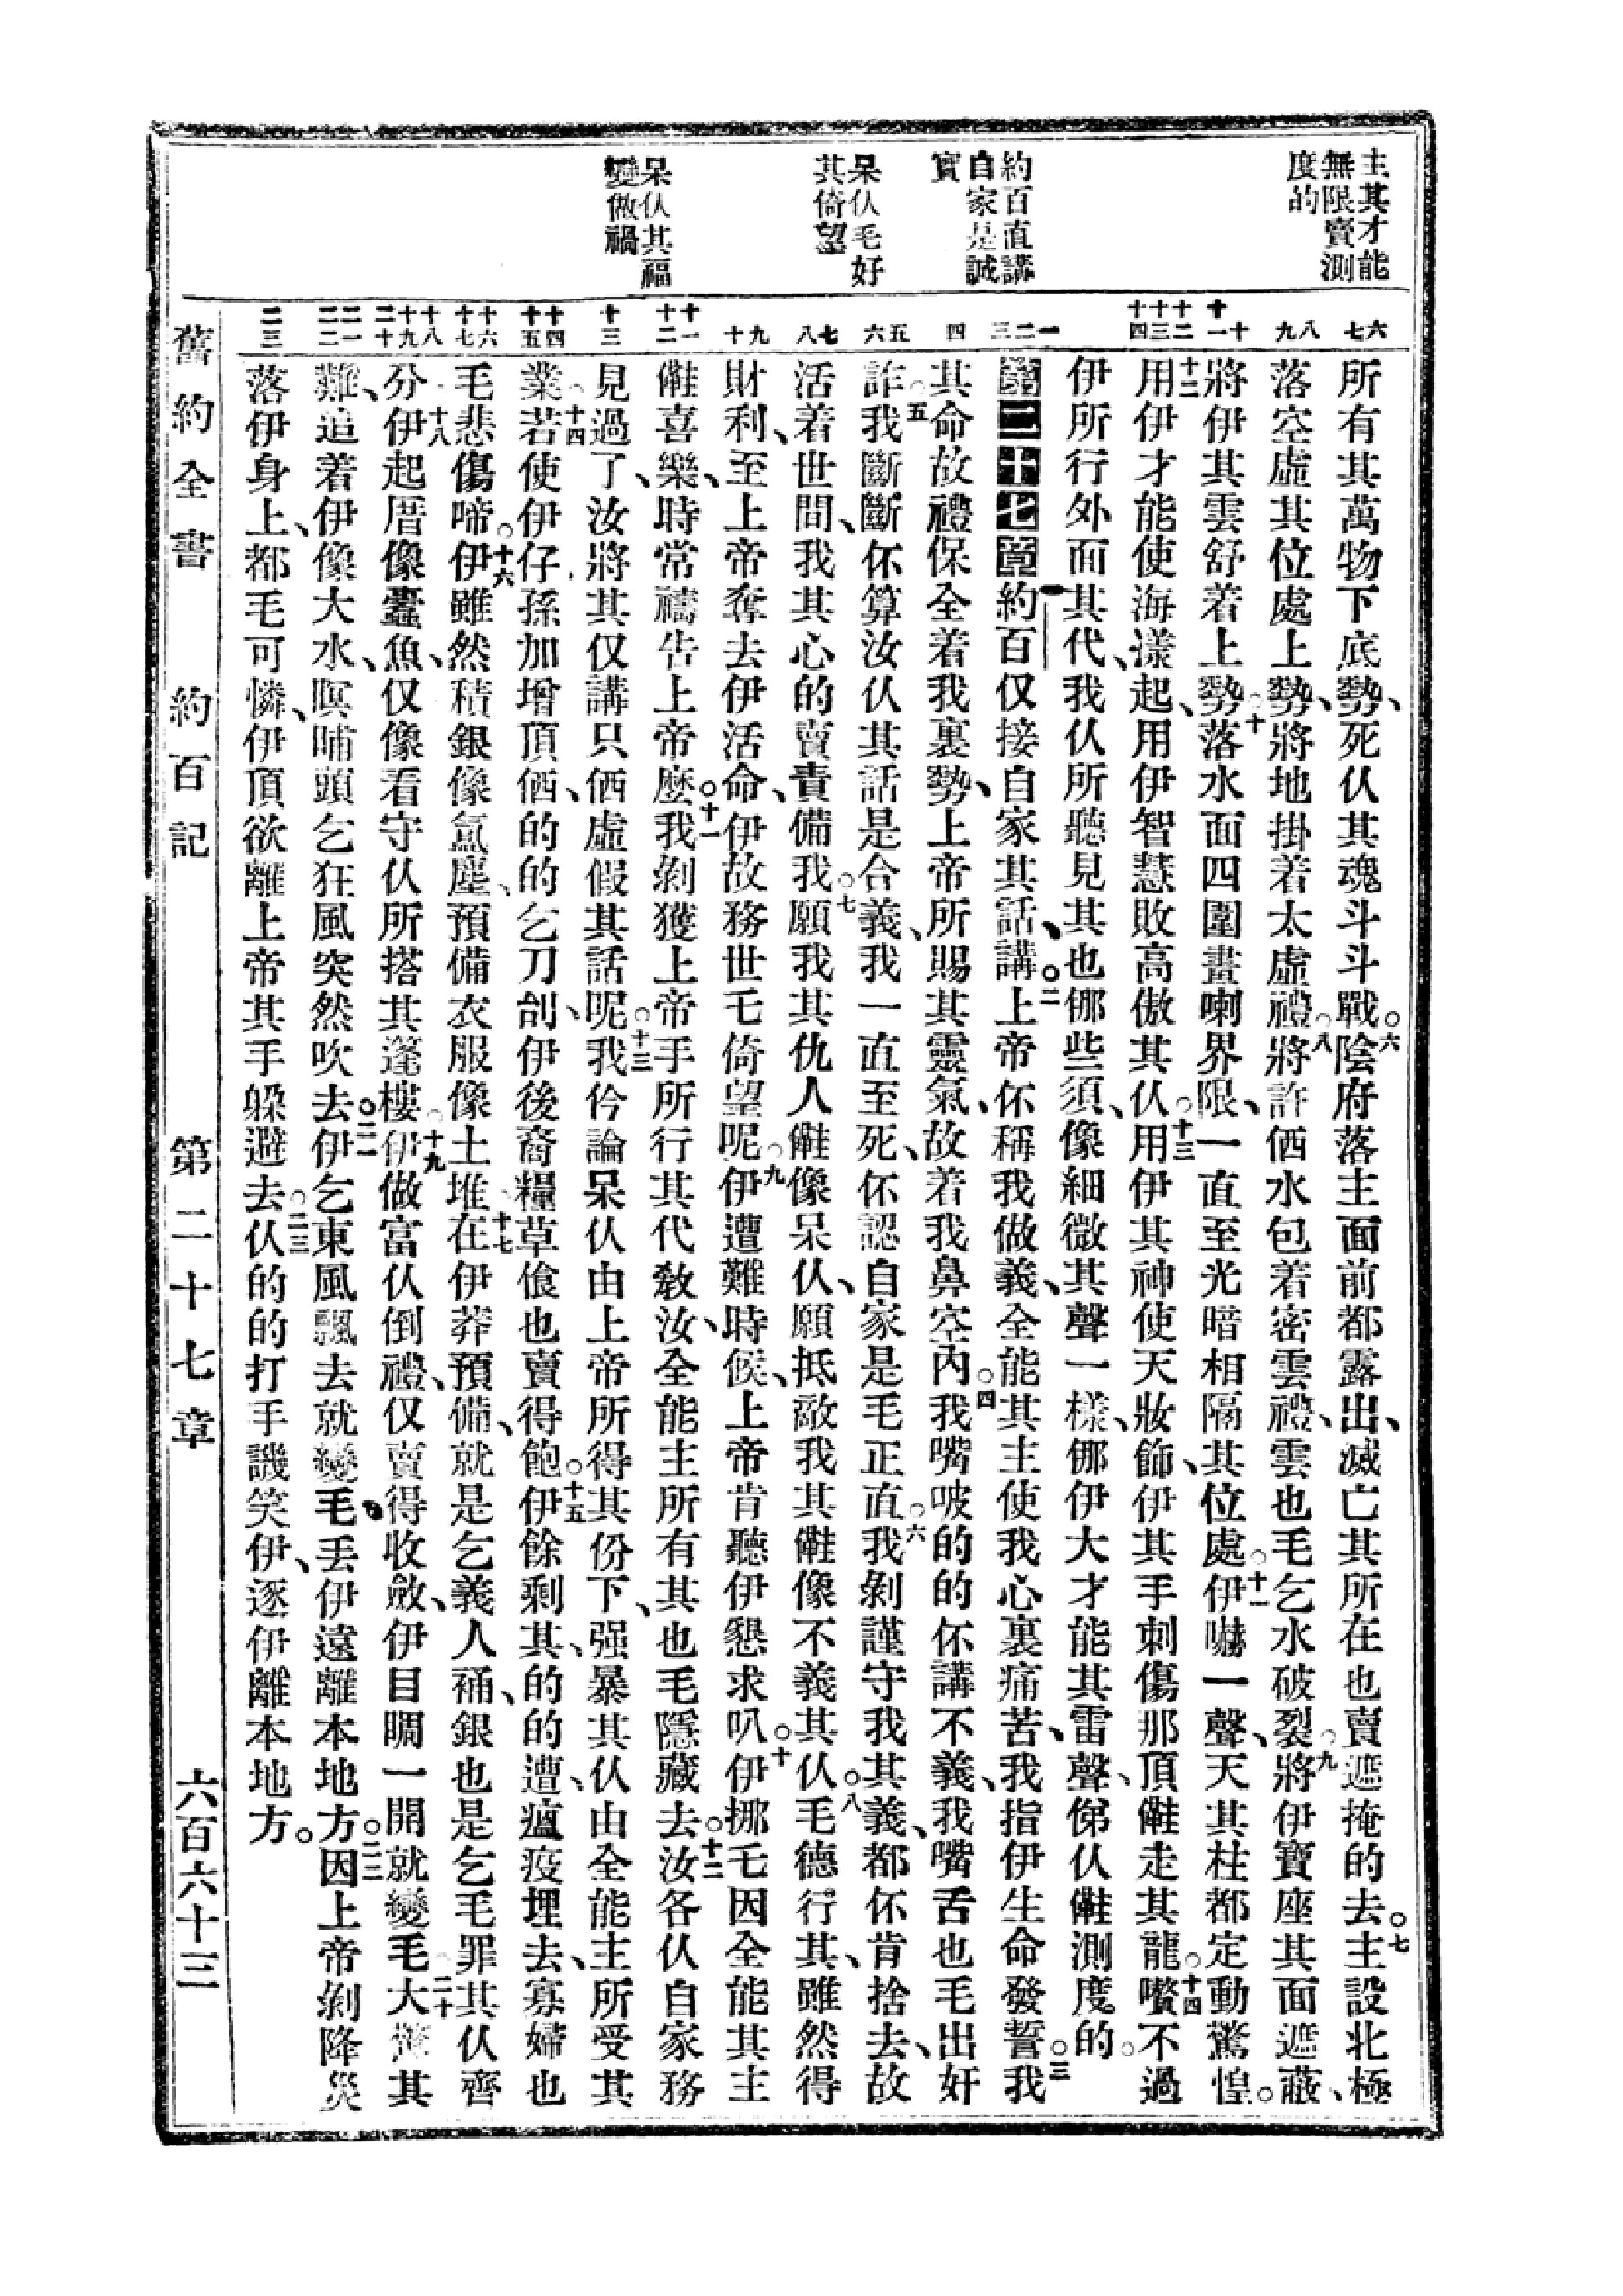 主其才能
無限賣測
度的
約百直講
自家是誠
實
呆仈毛好
其倚望
呆仈其福
變做禍
六 七 八 九 十 十一 十二 十三 十四 一 二 三 四 五 六 七 八 九 十 十一 十二 十三 十四 十五 十六 十七 十八 十九 二十 二一 二二 二三
所有其萬物下底勢、死仈其魂斗斗戰。六陰府落主面前都露出、滅亡其所在也賣遮掩的去。七主設北極
落空虛其位處上勢、將地掛着太虛禮。八將許⿰亻西水包着密雲禮、雲也毛乞水破裂。九將伊寶座其面遮蔽、
將伊其雲舒着上勢。十落水面四圍畫喇界限、一直至光暗相隔其位處。十一伊嚇一聲、天其柱都定動驚惶。
十二用伊才能使海漾起、用伊智慧敗高傲其仈。十三用伊其神使天妝飾、伊其手刺傷那頂⿰亻難走其龍。十四嚽不過
伊所行外面其代、我仈所聽見其也㑚些須、像細微其聲一樣、㑚伊大才能其雷聲、俤仈⿰亻難測度的。
第二十七章 一約百仅接自家其話、講。二上帝伓稱我做義、全能其主使我心裏痛苦、我指伊生命發誓。三我
其命故禮保全着我裏勢、上帝所賜其靈氣、故着我鼻空內。四我嘴㕰的的伓講不義、我嘴舌也毛出奸
詐。五我斷斷伓算汝仈其話是合義、我一直至死、伓認自家是毛正直。六我剝謹守我其義、都伓肯捨去、故
活着世間、我其心的賣責備我。七願我其仇人⿰亻難像呆仈、願抵敵我其⿰亻難像不義其仈。八仈毛德行其、雖然得
財利、至上帝奪去伊活命、伊故務世乇倚望呢。九伊遭難時候、上帝肯聽伊懇求叭。十伊挪乇因全能其主
⿰亻難喜樂、時常禱告上帝麽。十一我剝獲上帝手所行其代教汝、全能主所有其也毛隱藏去。十二汝各仈自家務
見過了、汝將其仅講只⿰亻西虛假其話呢。十三我仱論呆仈由上帝所得其份下、强暴其仈由全能主所受其
業。十四若使伊仔孫加增頂⿰亻西、的的乞刀刣、伊後裔糧草飡也賣得飽。十五伊餘剩其、的的遭、瘟疫埋去、寡婦也
毛悲傷啼。十六伊雖然積銀像𡊅塵、預備衣服像土堆。十七在伊莽預備、就是乞義人䘄、銀也是乞毛罪其仈齊
分。十八伊起厝像蠹魚、仅像看守仈所搭其篷樓。十九伊做富仈倒禮、仅賣得收斂、伊目睭一開就變毛。二十大驚其
難、追着伊像大水、暝晡頭乞狂風突然吹去。二一伊乞東風飄去就變毛、丟伊遠離本地方。二二因上帝剝降災
落伊身上、都毛可憐、伊頂欲離上帝其手躲避去。二三仈的的打手譏笑伊、逐伊離本地方。
舊約全書 約百記 第二十七章 六百六十三